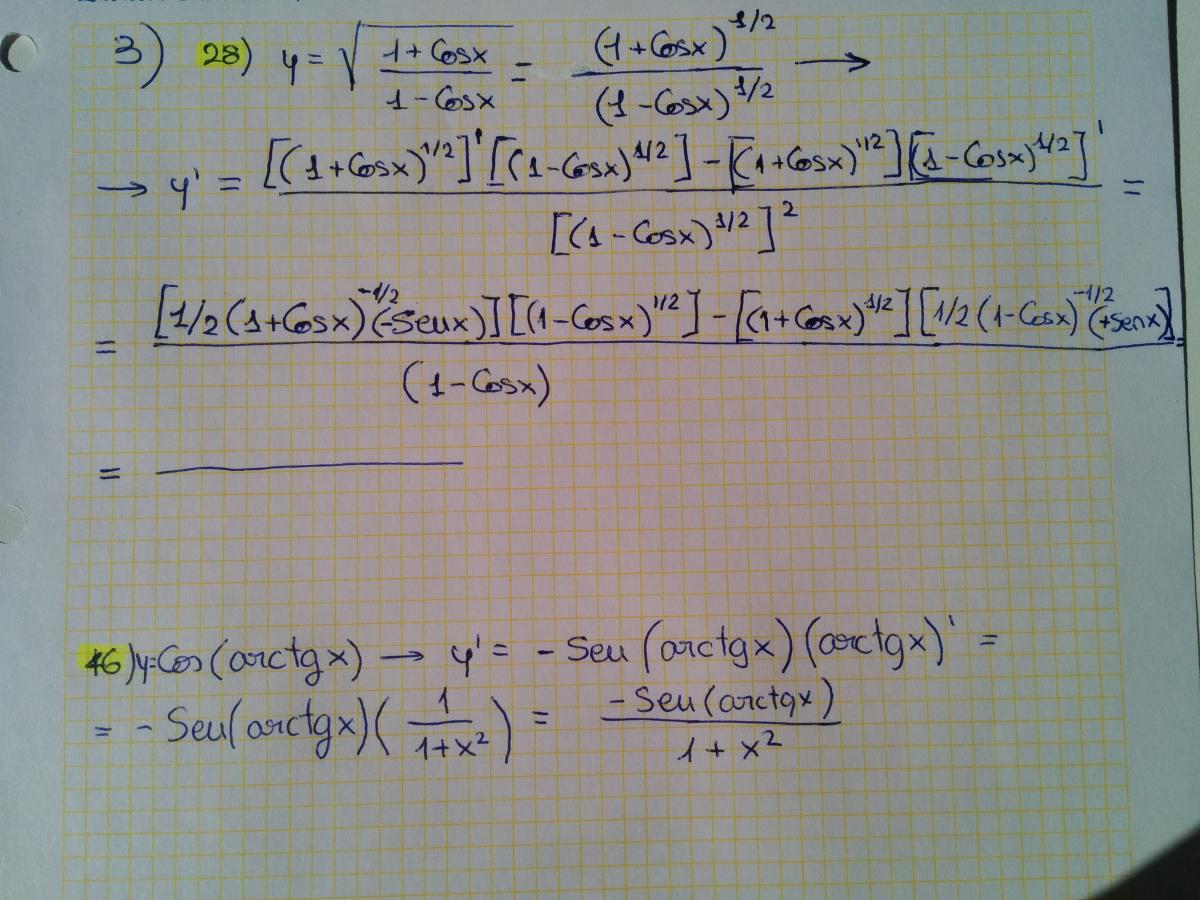 3) 28) y = √((1 + Cosx)/(1 - Cosx)) = (1 + Cosx)^1/2 / (1 - Cosx)^1/2 →
→ y' = [(1+Cosx)^1/2]' [(1-Cosx)^1/2] - [(1+Cosx)^1/2] [(1-Cosx)^1/2]' / [(1 - Cosx)^1/2]^2 =
= [1/2 (1+Cosx)^-1/2 (-Senx)] [(1-Cosx)^1/2] - [(1+Cosx)^1/2] [1/2 (1-Cosx)^-1/2 (+senx)] / (1 - Cosx) =
=
46) y=Cos (arctgx) → y' = - Sen (arctgx) (arctgx)' =
= - Sen (arctgx) (1/(1+x²)) = -Sen (arctgx) / (1 + x²)